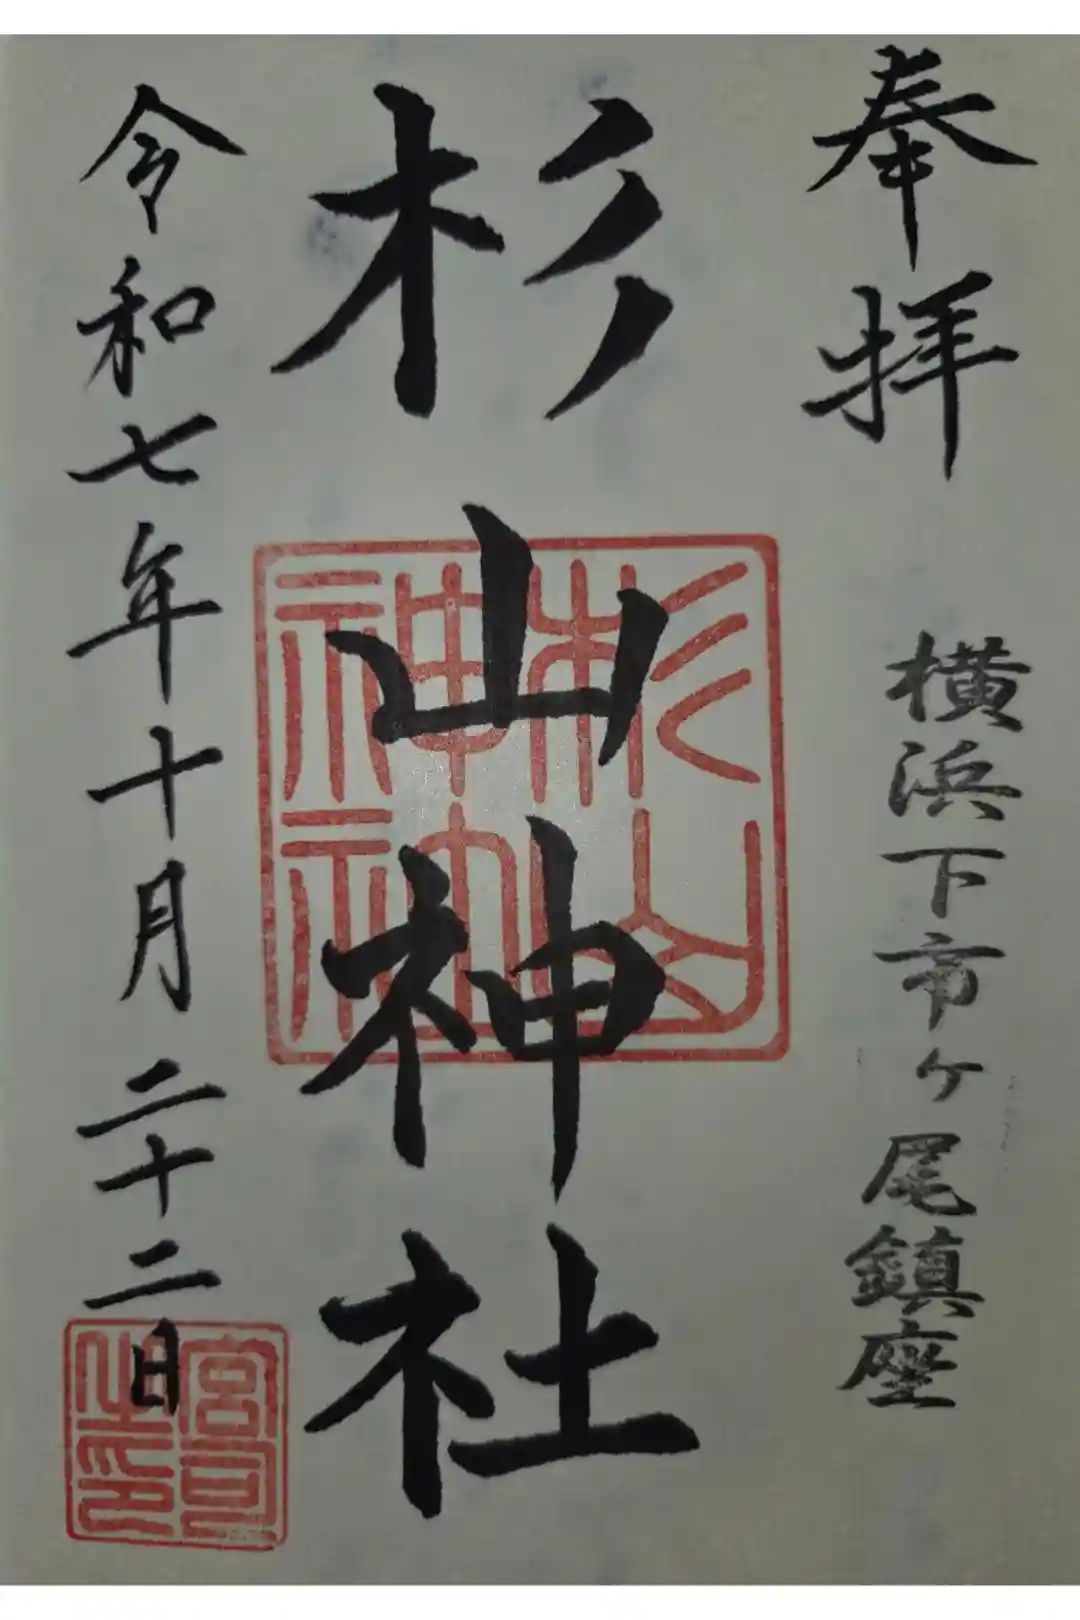 奉拝
横浜下市ヶ尾鎮座
杉山神社
杉山
神社
令和七年十月二十二日
宮司
之印